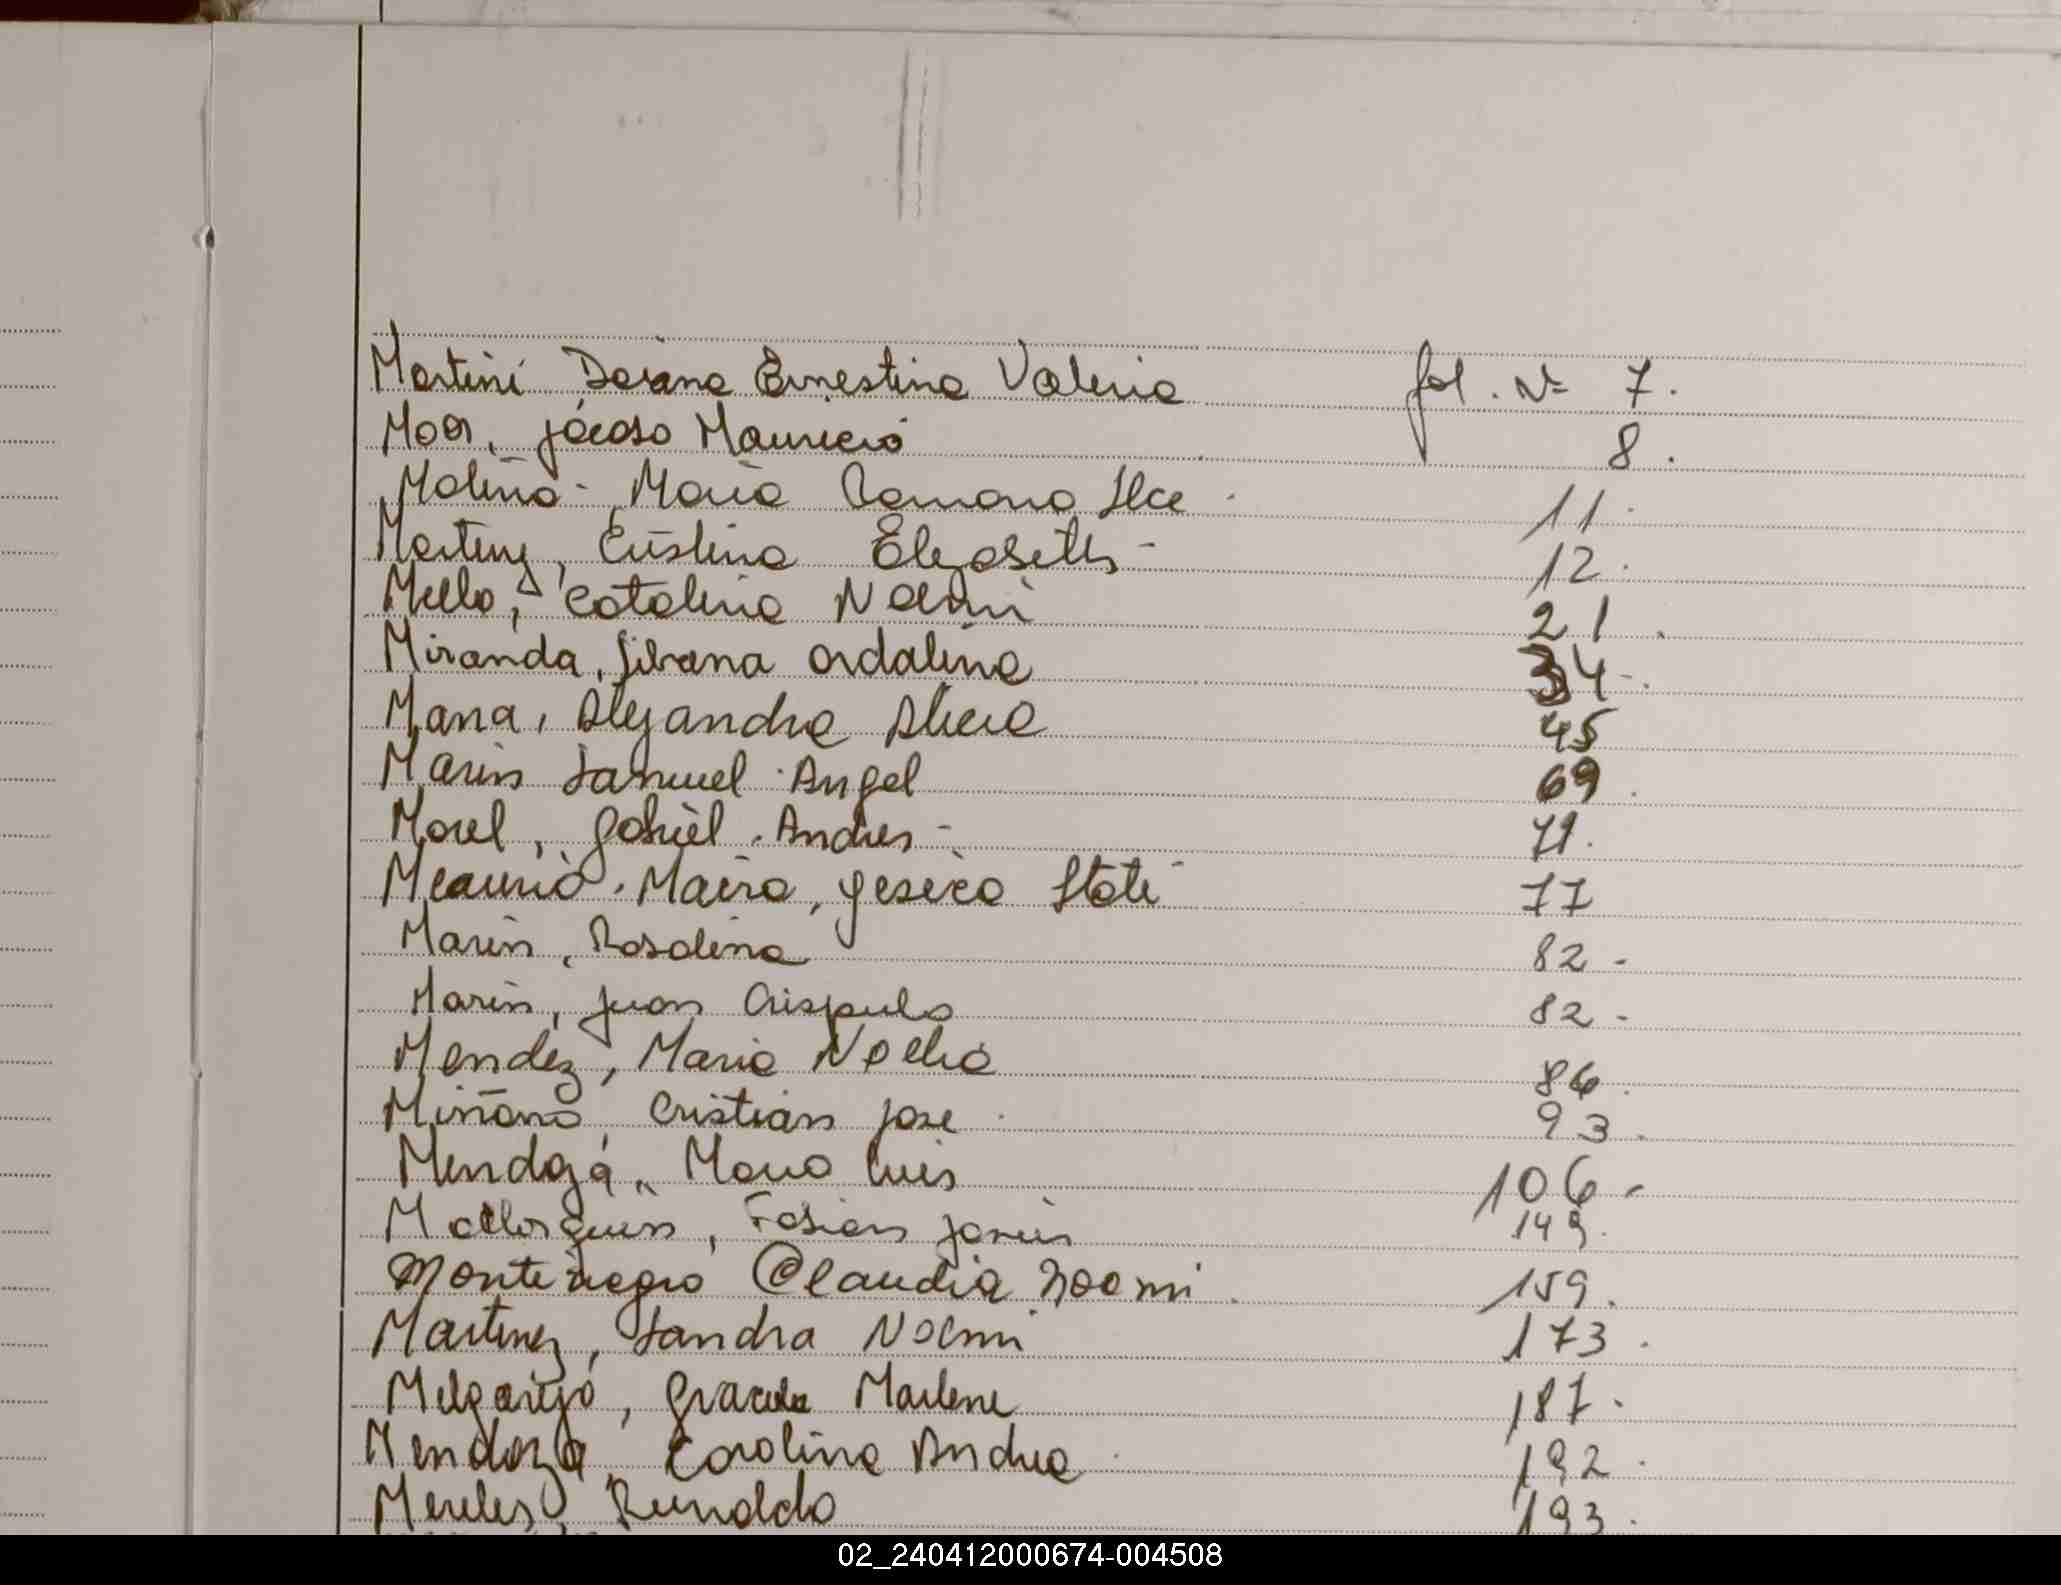 Martini Daiana Ernestina Valeria fol. Nº 7.
Mora, Jocoso Mauricio 8.
Molina - Maria Ramona Ilce - 11.
Martinez, Cristina Elizabeth - 12.
Mello, Catalina Noemi 21.
Miranda, Silvana Ordalina 34-.
Mana, Alejandra Alicia 45
Marin Samuel Angel 69.
Morel, Gabriel Andres - 71.
Meaurio. Maira, Yesica Itati 77
Marin, Rosalina 82-
Marin, Juan Crispulo 82-
Mendez, Maria Noelia 86.
Miñano, Cristian Jose 93.
Mendoza, Mario Luis 106-
Mallorquin, Fabian Javier 149.
Montenegro Claudia Noemi. 159.
Martinez, Sandra Noemi 173.
Melgarejo, Graciela Marlene 187.
Mendoza Carolina Andrea 192.
Mereles, Reinaldo 193.
02_240412000674-004508